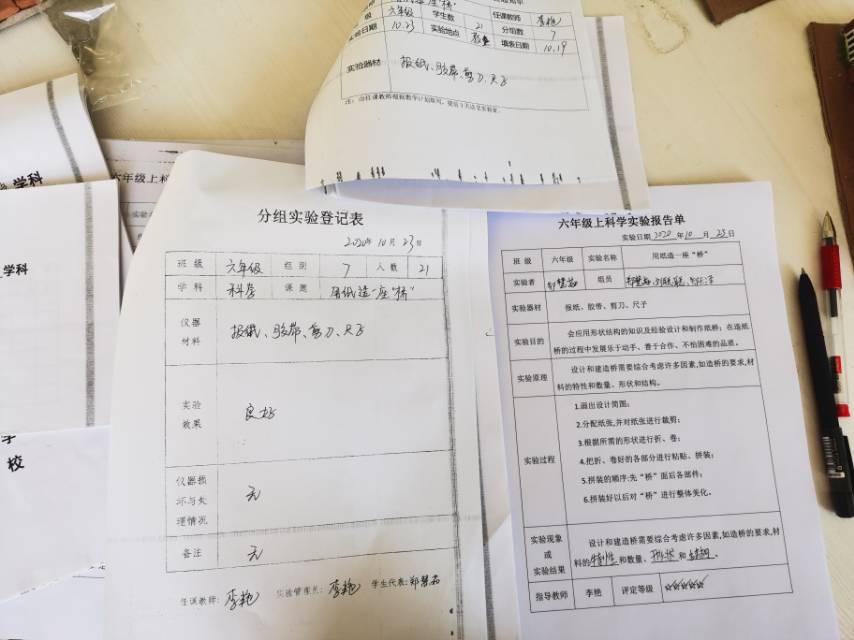 六年级 学生数 21 任课教师 李艳
实验日期 10.23 实验地点 分组数 7
填表日期 10.19
实验器材 报纸、胶带、剪刀、尺子
学科
学科
校
六年级上科
分组实验登记表
2020年10月23日
班级 六年级 组别 7 人数 21
学科 科学 课题 用纸造一座“桥”
仪器材料 报纸、胶带、剪刀、尺子
实验效果 良好
仪器损坏与处理情况 无
备注 无
任课教师：李艳 实验管理员：李艳 学生代表：郑慧茹
六年级上科学实验报告单
实验日期 2020 年 10 月 23 日
班级 六年级 实验名称 用纸造一座“桥”
实验者 郑慧茹 组员
实验器材 报纸、胶带、剪刀、尺子
实验目的 会应用形状结构的知识及经验设计和制作纸桥；在造纸
桥的过程中发展乐于动手、善于合作、不怕困难的品质。
实验原理 设计和建造桥需要综合考虑许多因素,如造桥的要求,材
料的特性和数量、形状和结构。
实验过程
1.画出设计简图；
2.分配纸张,并对纸张进行裁剪；
3.根据所需的形状进行折、卷；
4.把折、卷好的各部分进行粘贴、拼装；
5.拼装的顺序:先“桥”面后各部件；
6.拼装好以后对“桥”进行整体美化。
实验现象或实验结果 设计和建造桥需要综合考虑许多因素,如造桥的要求,材
料的特性和数量、形状和结构。
指导教师 李艳 评定等级 ☆☆☆☆☆